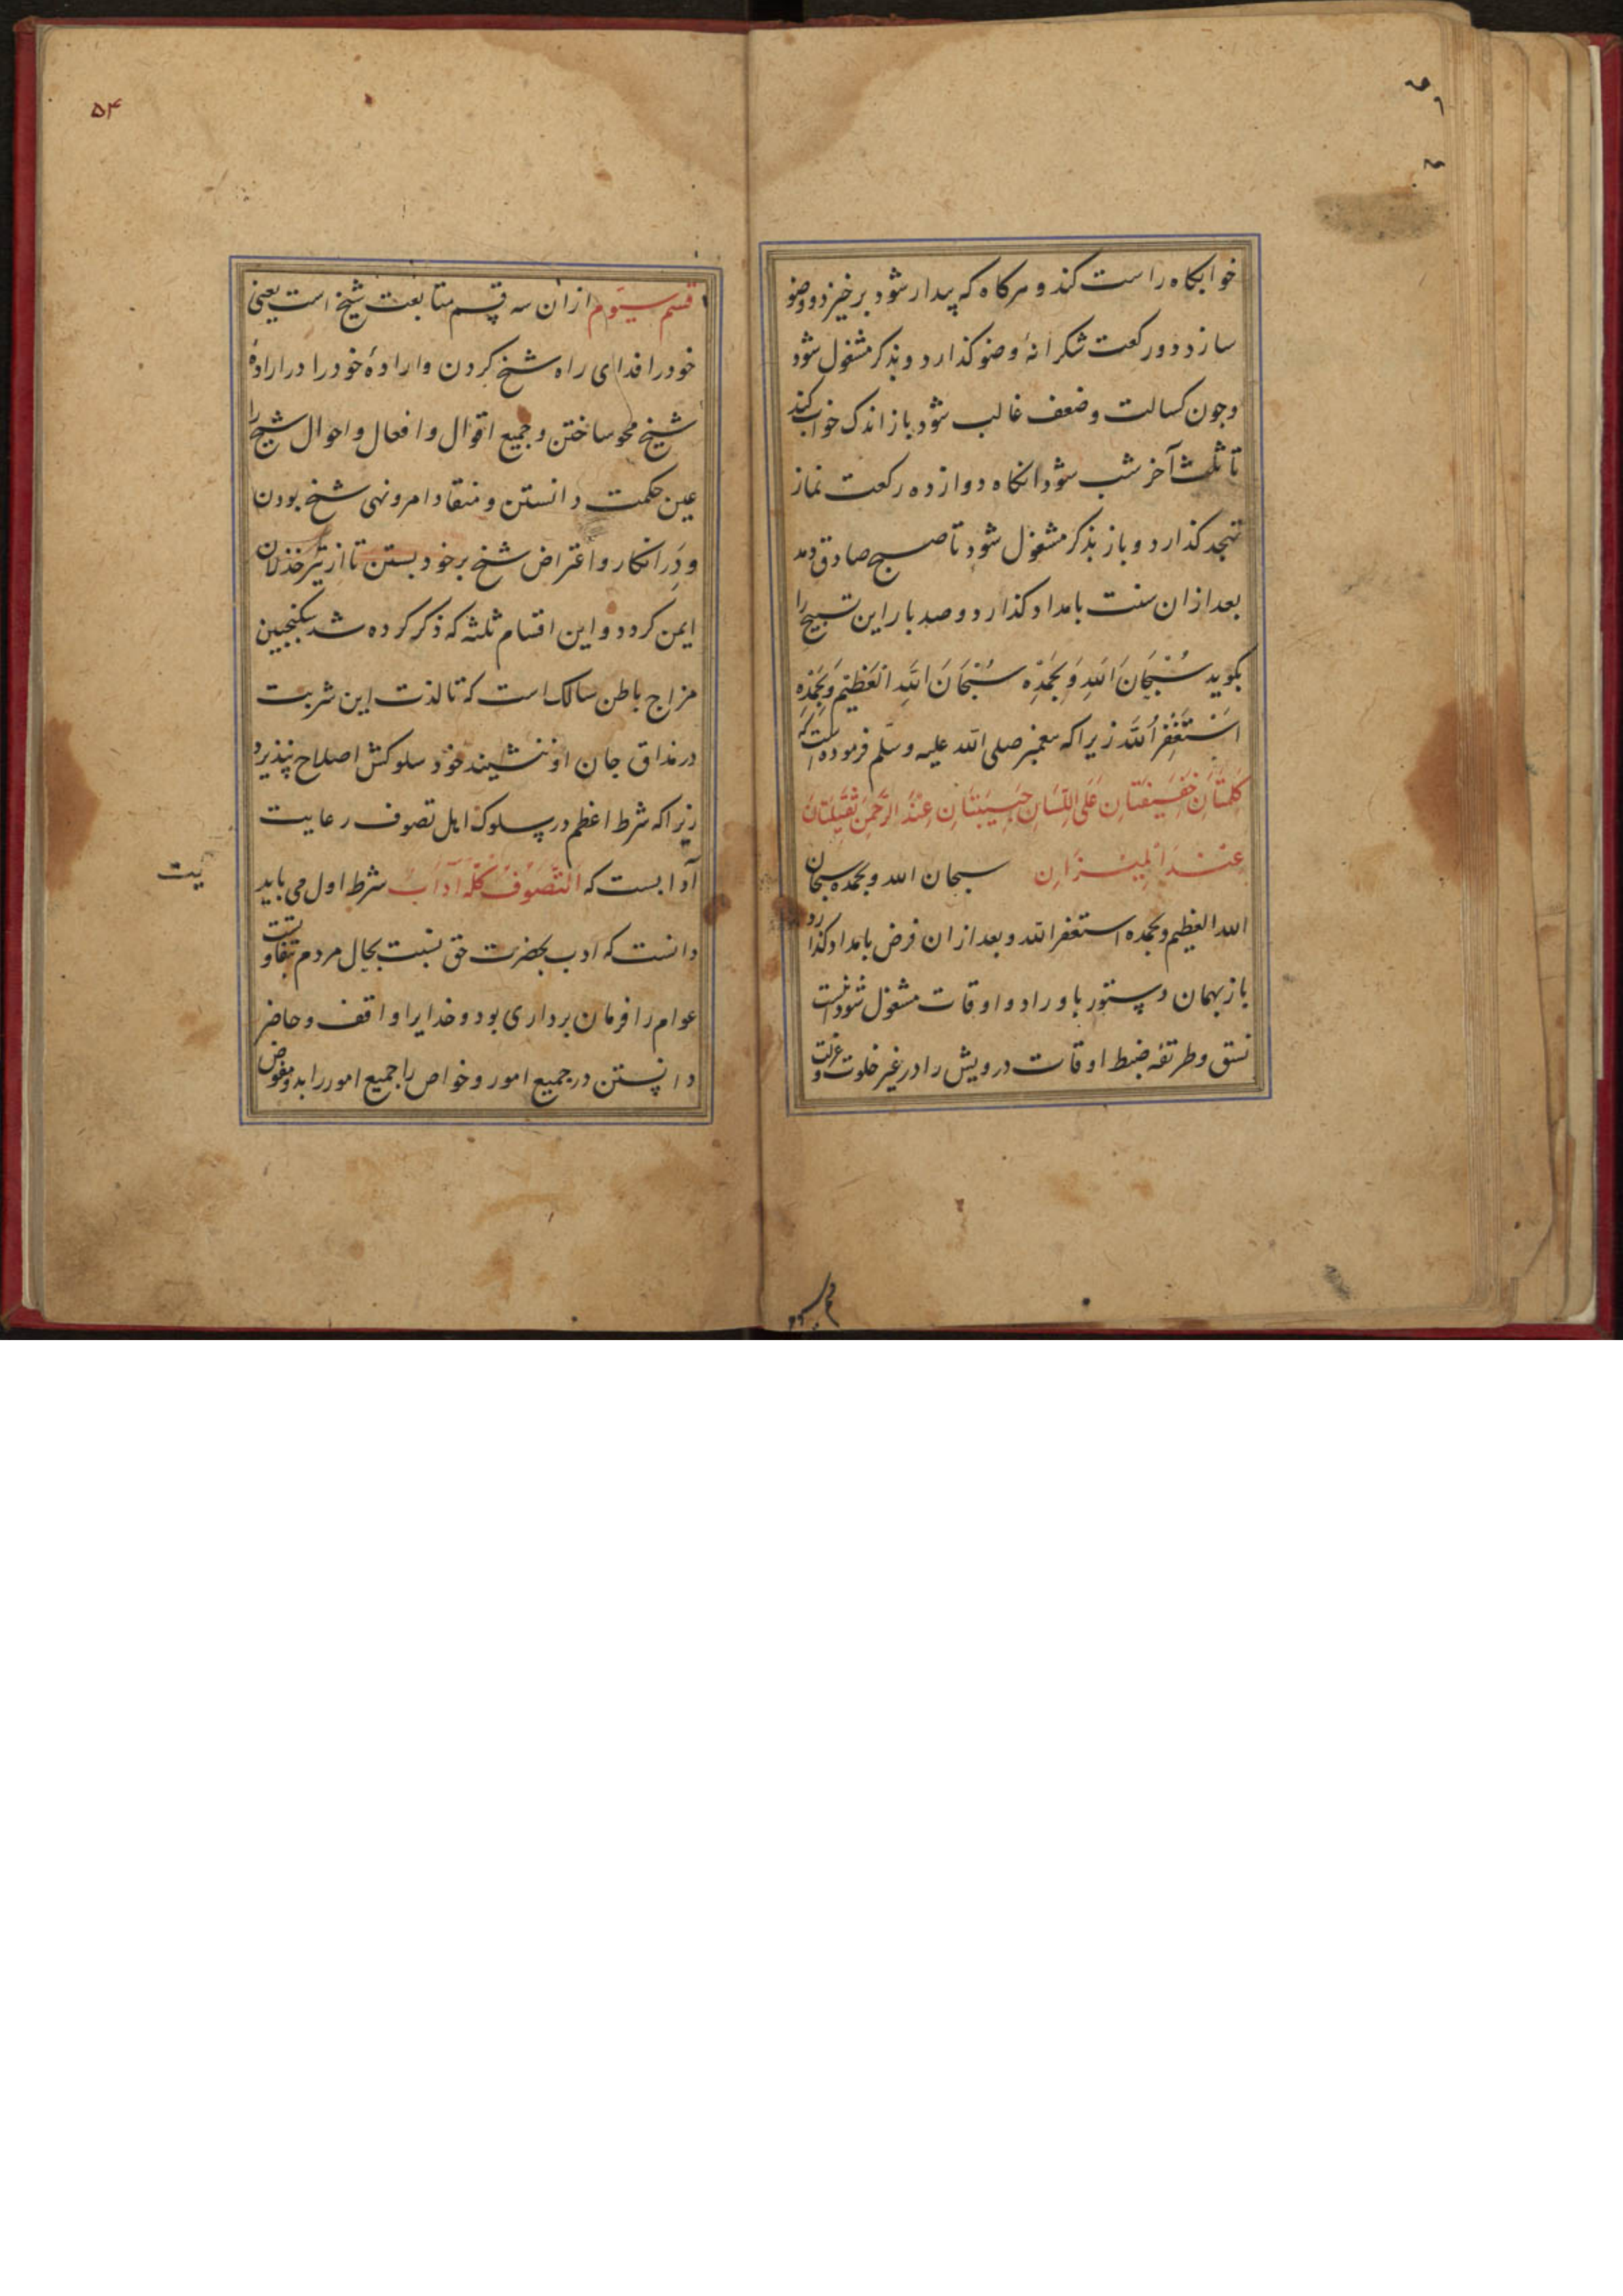 خوابکاه راست کند و هرکاه که بیدار شود برخیزد و وضو
سازد دو رکعت شکرانهٔ وضو کذارد و بذکر مشغول شود
و چون کسالت و ضعف غالب شود باز اندک خواب کند
تا ثلث آخر شب شود انکاه دوازده رکعت نماز
تهجد کذارد و باز بذکر مشغول شود تا صبح صادق دمد
بعد ازان سنت بامداد کذارد و صد بار این تسبیح را
بکوید سُبْحَانَ اللهِ وَ بِحَمْدِهِ سُبْحَانَ اللهِ الْعَظِیْمِ وَ بِحَمْدِهِ
اَسْتَغْفِرُ اللهَ زیرا که پیغمبر صلی الله علیه و سلم فرموده است که
کَلِمَتَانِ خَفِیْفَتَانِ عَلَی اللِّسَانِ حَبِیْبَتَانِ عِنْدَ الرَّحْمٰنِ ثَقِیْلَتَانِ
عِنْدَ الْمِیْزَانِ سبحان الله و بحمده سبحان
الله العظیم و بحمده استغفر الله و بعد ازان فرض بامداد کذارد
باز بهمان دستور باوراد و اوقات مشغول شود اینست
نسق و طریقهٔ ضبط اوقات درویش را در غیر خلوت و عزلت
۵۴
قسم سیوم ازان سه قسم متابعت شیخ است یعنی
خود را فدای راه شیخ کردن و ارادهٔ خود را در ارادهٔ
شیخ محو ساختن و جمیع اقوال و افعال و احوال شیخ را
عین حکمت دانستن و منقاد امر و نهی شیخ بودن
و در انکار و اعتراض شیخ بر خود بستن تا از تیر خذلان
ایمن کردد و این اقسام ثلثه که ذکر کرده شد سکنجبین
مزاج باطن سالک است که تا لذت این شربت
در مذاق جان او ننشیند خود سلوکش اصلاح نپذیرد
زیرا که شرط اعظم در سلوک اهل تصوف رعایت
آدابست که اَلتَّصَوُّفُ کُلُّهُ آدَابٌ شرط اول می باید
دانست که ادب بحضرت حق نسبت بحال مردم تفاوتست
عوام را فرمان برداری بود و خدایرا واقف و حاضر
دانستن در جمیع امور و خواص را جمیع امور را بدو مفوض
یت